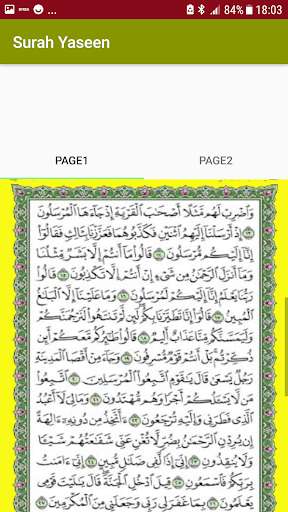 84% 18:03
Surah Yaseen
PAGE1 PAGE2
وَٱضْرِبْ لَهُم مَّثَلًا أَصْحَٰبَ ٱلْقَرْيَةِ إِذْ جَآءَهَا ٱلْمُرْسَلُونَ
١٣ إِذْ أَرْسَلْنَآ إِلَيْهِمُ ٱثْنَيْنِ فَكَذَّبُوهُمَا فَعَزَّزْنَا بِثَالِثٍ فَقَالُوٓا۟
إِنَّآ إِلَيْكُم مُّرْسَلُونَ ١٤ قَالُوا۟ مَآ أَنتُمْ إِلَّا بَشَرٌ مِّثْلُنَا
وَمَآ أَنزَلَ ٱلرَّحْمَٰنُ مِن شَىْءٍ إِنْ أَنتُمْ إِلَّا تَكْذِبُونَ ١٥ قَالُوا۟
رَبُّنَا يَعْلَمُ إِنَّآ إِلَيْكُمْ لَمُرْسَلُونَ ١٦ وَمَا عَلَيْنَآ إِلَّا ٱلْبَلَٰغُ
ٱلْمُبِينُ ١٧ قَالُوٓا۟ إِنَّا تَطَيَّرْنَا بِكُمْ لَئِن لَّمْ تَنتَهُوا۟ لَنَرْجُمَنَّكُمْ
وَلَيَمَسَّنَّكُم مِّنَّا عَذَابٌ أَلِيمٌ ١٨ قَالُوا۟ طَٰٓئِرُكُم مَّعَكُمْ أَئِن
ذُكِّرْتُم بَلْ أَنتُمْ قَوْمٌ مُّسْرِفُونَ ١٩ وَجَآءَ مِنْ أَقْصَا ٱلْمَدِينَةِ
رَجُلٌ يَسْعَىٰ قَالَ يَٰقَوْمِ ٱتَّبِعُوا۟ ٱلْمُرْسَلِينَ ٢٠ ٱتَّبِعُوا۟
مَن لَّا يَسْـَٔلُكُمْ أَجْرًا وَهُم مُّهْتَدُونَ ٢١ وَمَا لِىَ لَآ أَعْبُدُ
ٱلَّذِى فَطَرَنِى وَإِلَيْهِ تُرْجَعُونَ ٢٢ ءَأَتَّخِذُ مِن دُونِهِۦٓ ءَالِهَةً
إِن يُرِدْنِ ٱلرَّحْمَٰنُ بِضُرٍّ لَّا تُغْنِ عَنِّى شَفَٰعَتُهُمْ شَيْـًٔا
وَلَا يُنقِذُونِ ٢٣ إِنِّىٓ إِذًا لَّفِى ضَلَٰلٍ مُّبِينٍ ٢٤ إِنِّىٓ ءَامَنتُ
بِرَبِّكُمْ فَٱسْمَعُونِ ٢٥ قِيلَ ٱدْخُلِ ٱلْجَنَّةَ قَالَ يَٰلَيْتَ قَوْمِى
يَعْلَمُونَ ٢٦ بِمَا غَفَرَ لِى رَبِّى وَجَعَلَنِى مِنَ ٱلْمُكْرَمِينَ ٢٧